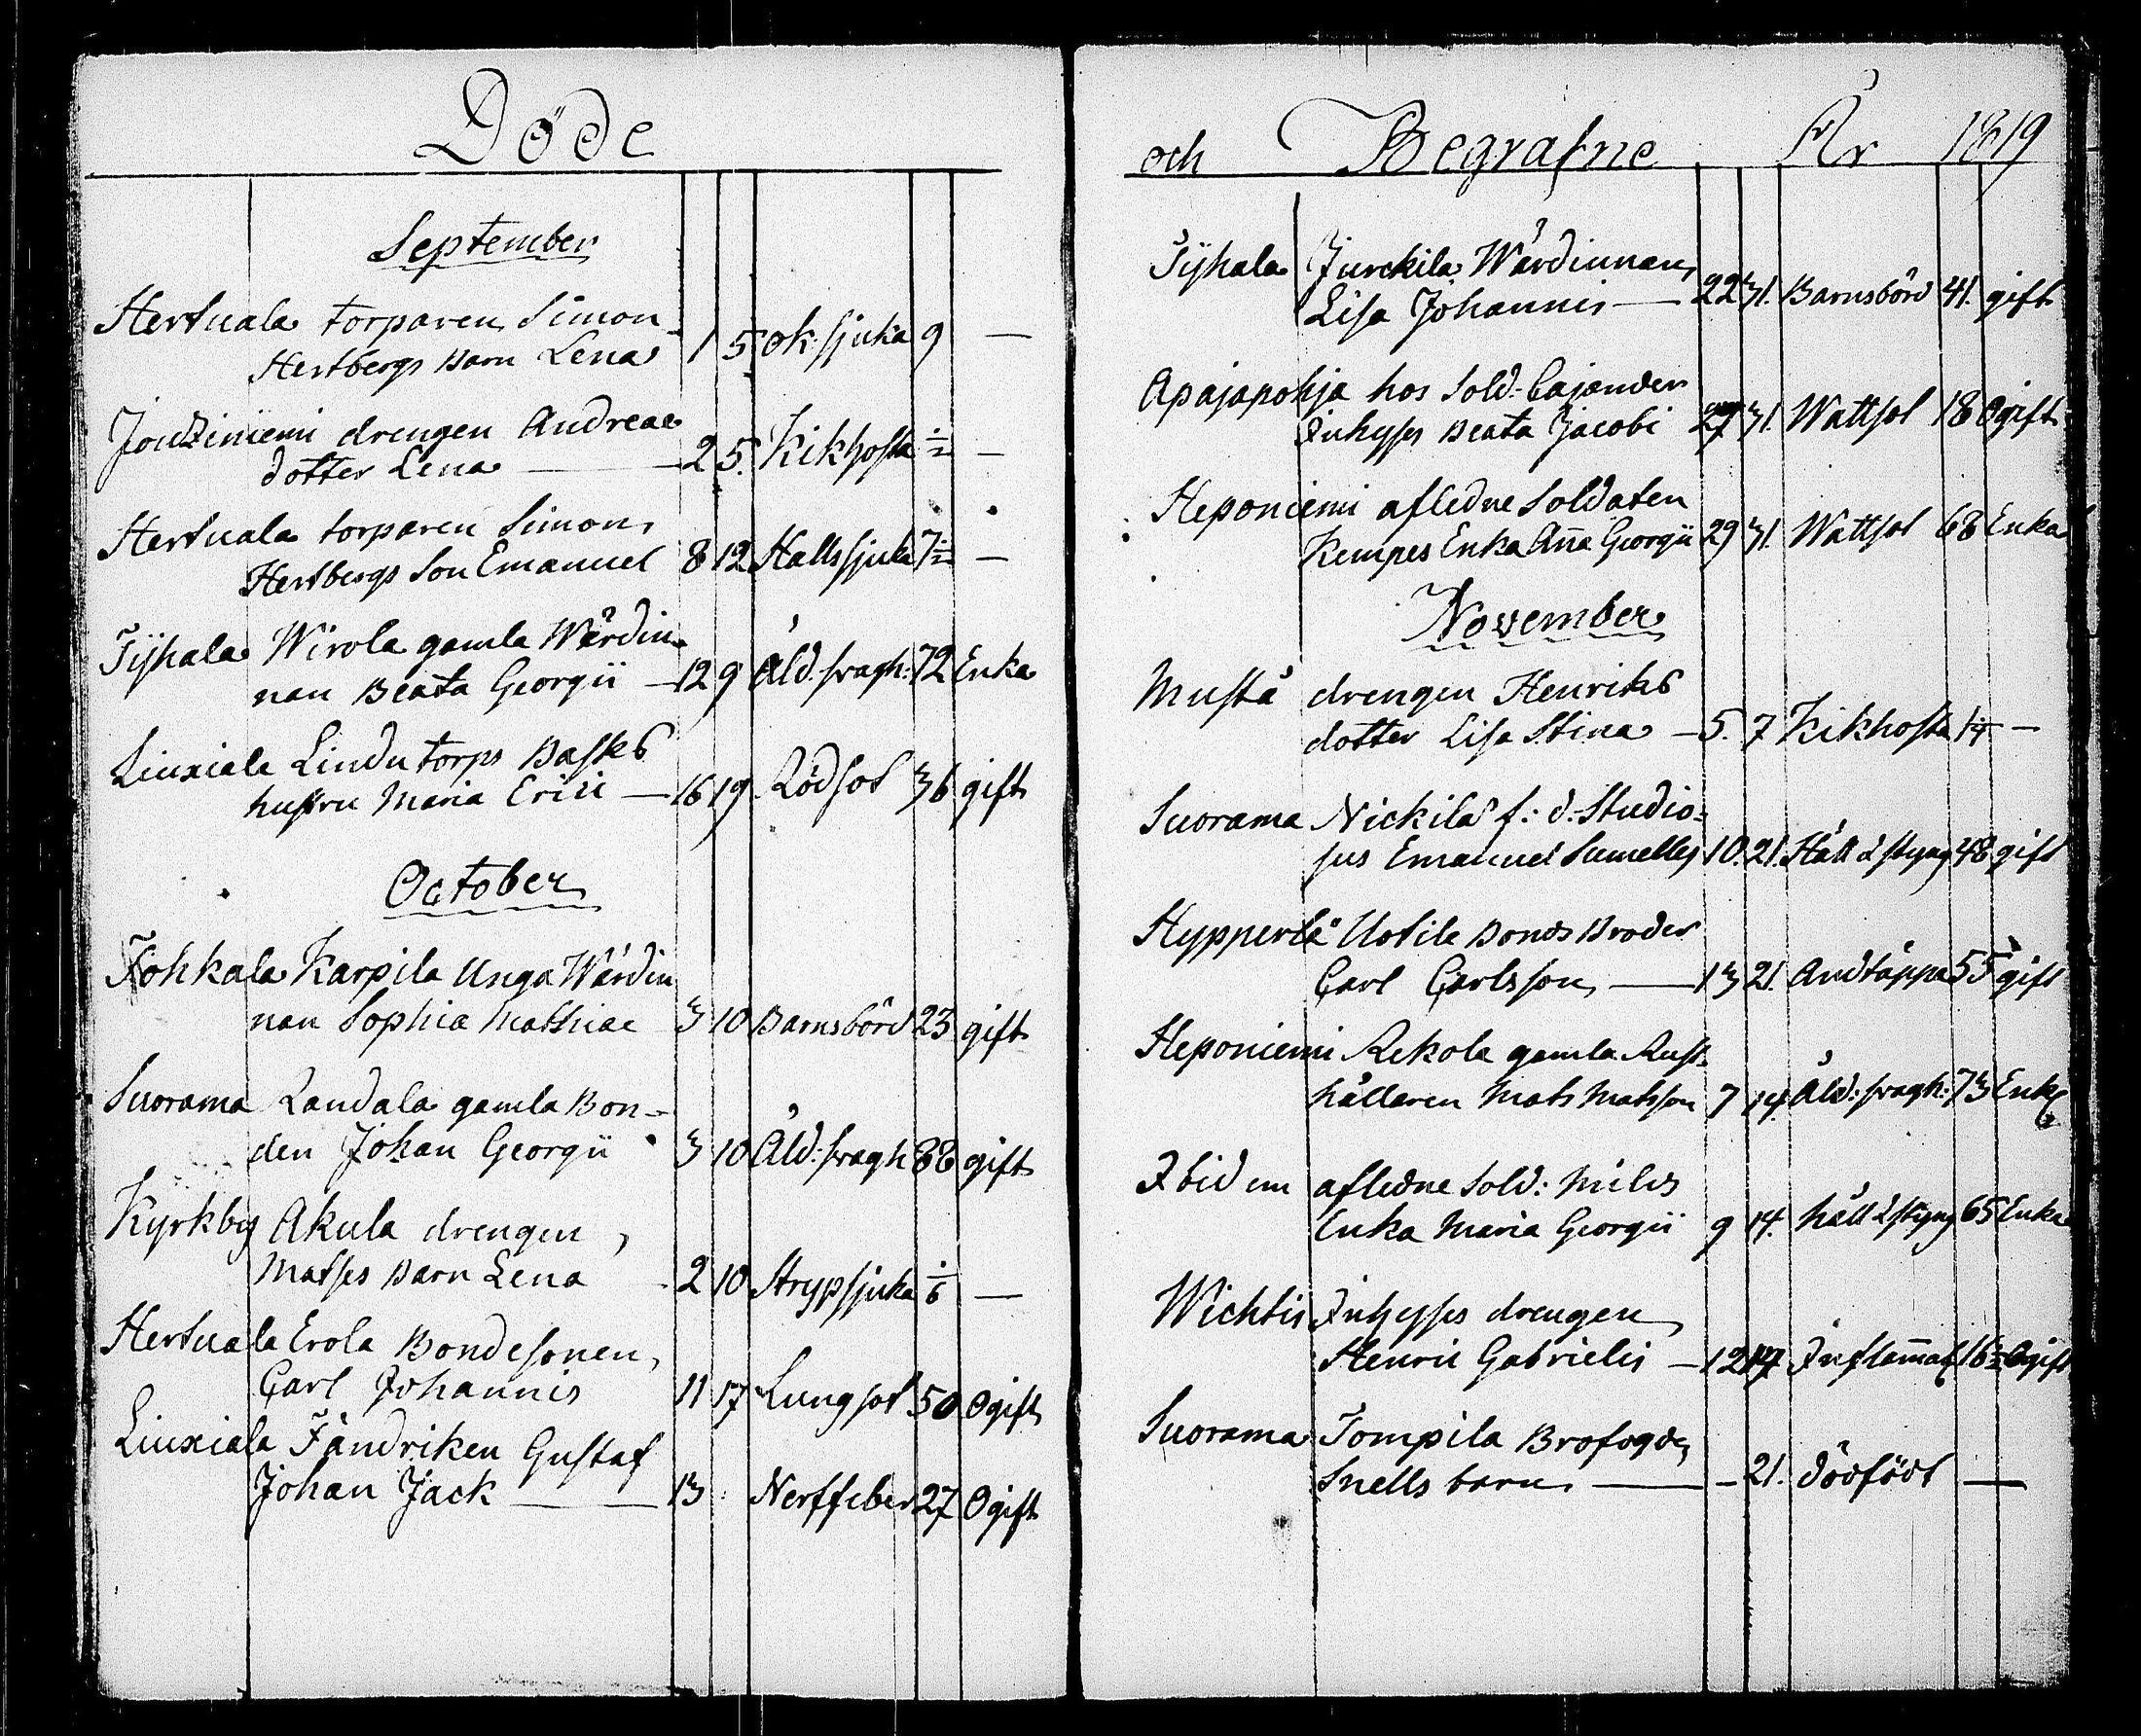 Döde
September
Hertuala torparen Simon
Hertbergs Barn Lena 1 5 ok: sjuka 9 —
Jouziniemi drengen Andreae
dotter Lena — 2 5. Kikhosta —
Hertuala torparen Simon
Hertbergs Son Emanuel 8 12 Hallssjuka —
Tijhala Wirola gamla Wärdin
nan Beata Georgii — 12 9 Åld: svagh: 72 Enka
Liuxiala Lindu torps Basks
hustru Maria Erici — 16 19 Rödsot 36 gift
October
Tohkala Karpila Unga Wärdin
nan Sophia Mathiae 3 10 Barnsbörd 23 gift
Suorama Laudala gamla Bon-
den Johan Georgii 3 10 Åld: svagh 88 gift
Kyrkby Akula drengen
Matses Barn Lena 2 10 Strypsjuka —
Hertuala Erola Bondesonen
Carl Johannis 11 17 Lungsot 50 Ogift
Liuxiala Fändriken Gustaf
Johan Jack — 13 Nerffeber 27 Ogift
och Begrafne År 1819
Tijhala Jurckila Wärdinnan
Lisa Johannis — 22 31. Barnsbörd 41. gift
Apajapohja hos Sold: Cajander
Inhyses Beata Jacobi 27 31. Wattsot 18 Ogift
Heponiemi afledne Soldaten
Kempes Enka Aña Georgii 29 31. Wattsot 68 Enka
November
Mustä drengen Henriks
dotter Lisa Stina — 5. 7 Kikhosta —
Suorama Nickilä f: d: Studio=
sus Emanuel 10. 21. Håll & styng 48 gift
Hypperlä Uotila Bonds Broder
Carl Carlsson — 13 21. Andtäppa 55 gift
Heponiemi Rekola gamla Rust-
hållaren Mats Matsson 7 14. Åld: svagh: 73
Ibidem afledne Sold: Milds
Enka Maria Georgii 9 14. håll & styng 65 Enka
Wichtis Inhyses drengen
Henric Gabrielis — 12 14. Ogift
Suorama Tompila Brofogde
Snells barn — - 21. dödfödt —